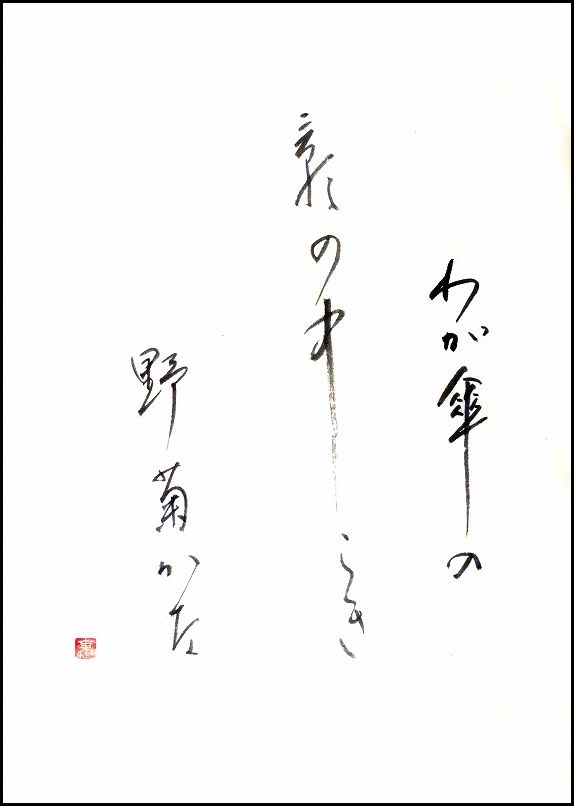 わが傘の
影の中こき
野菊かな